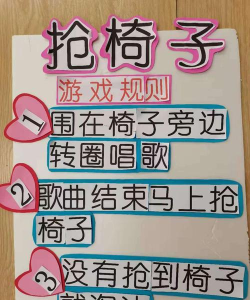 抢椅子
游戏规则
1 围在椅子旁边
转圈唱歌
2 歌曲结束马上抢
椅子
3 没有抢到椅子